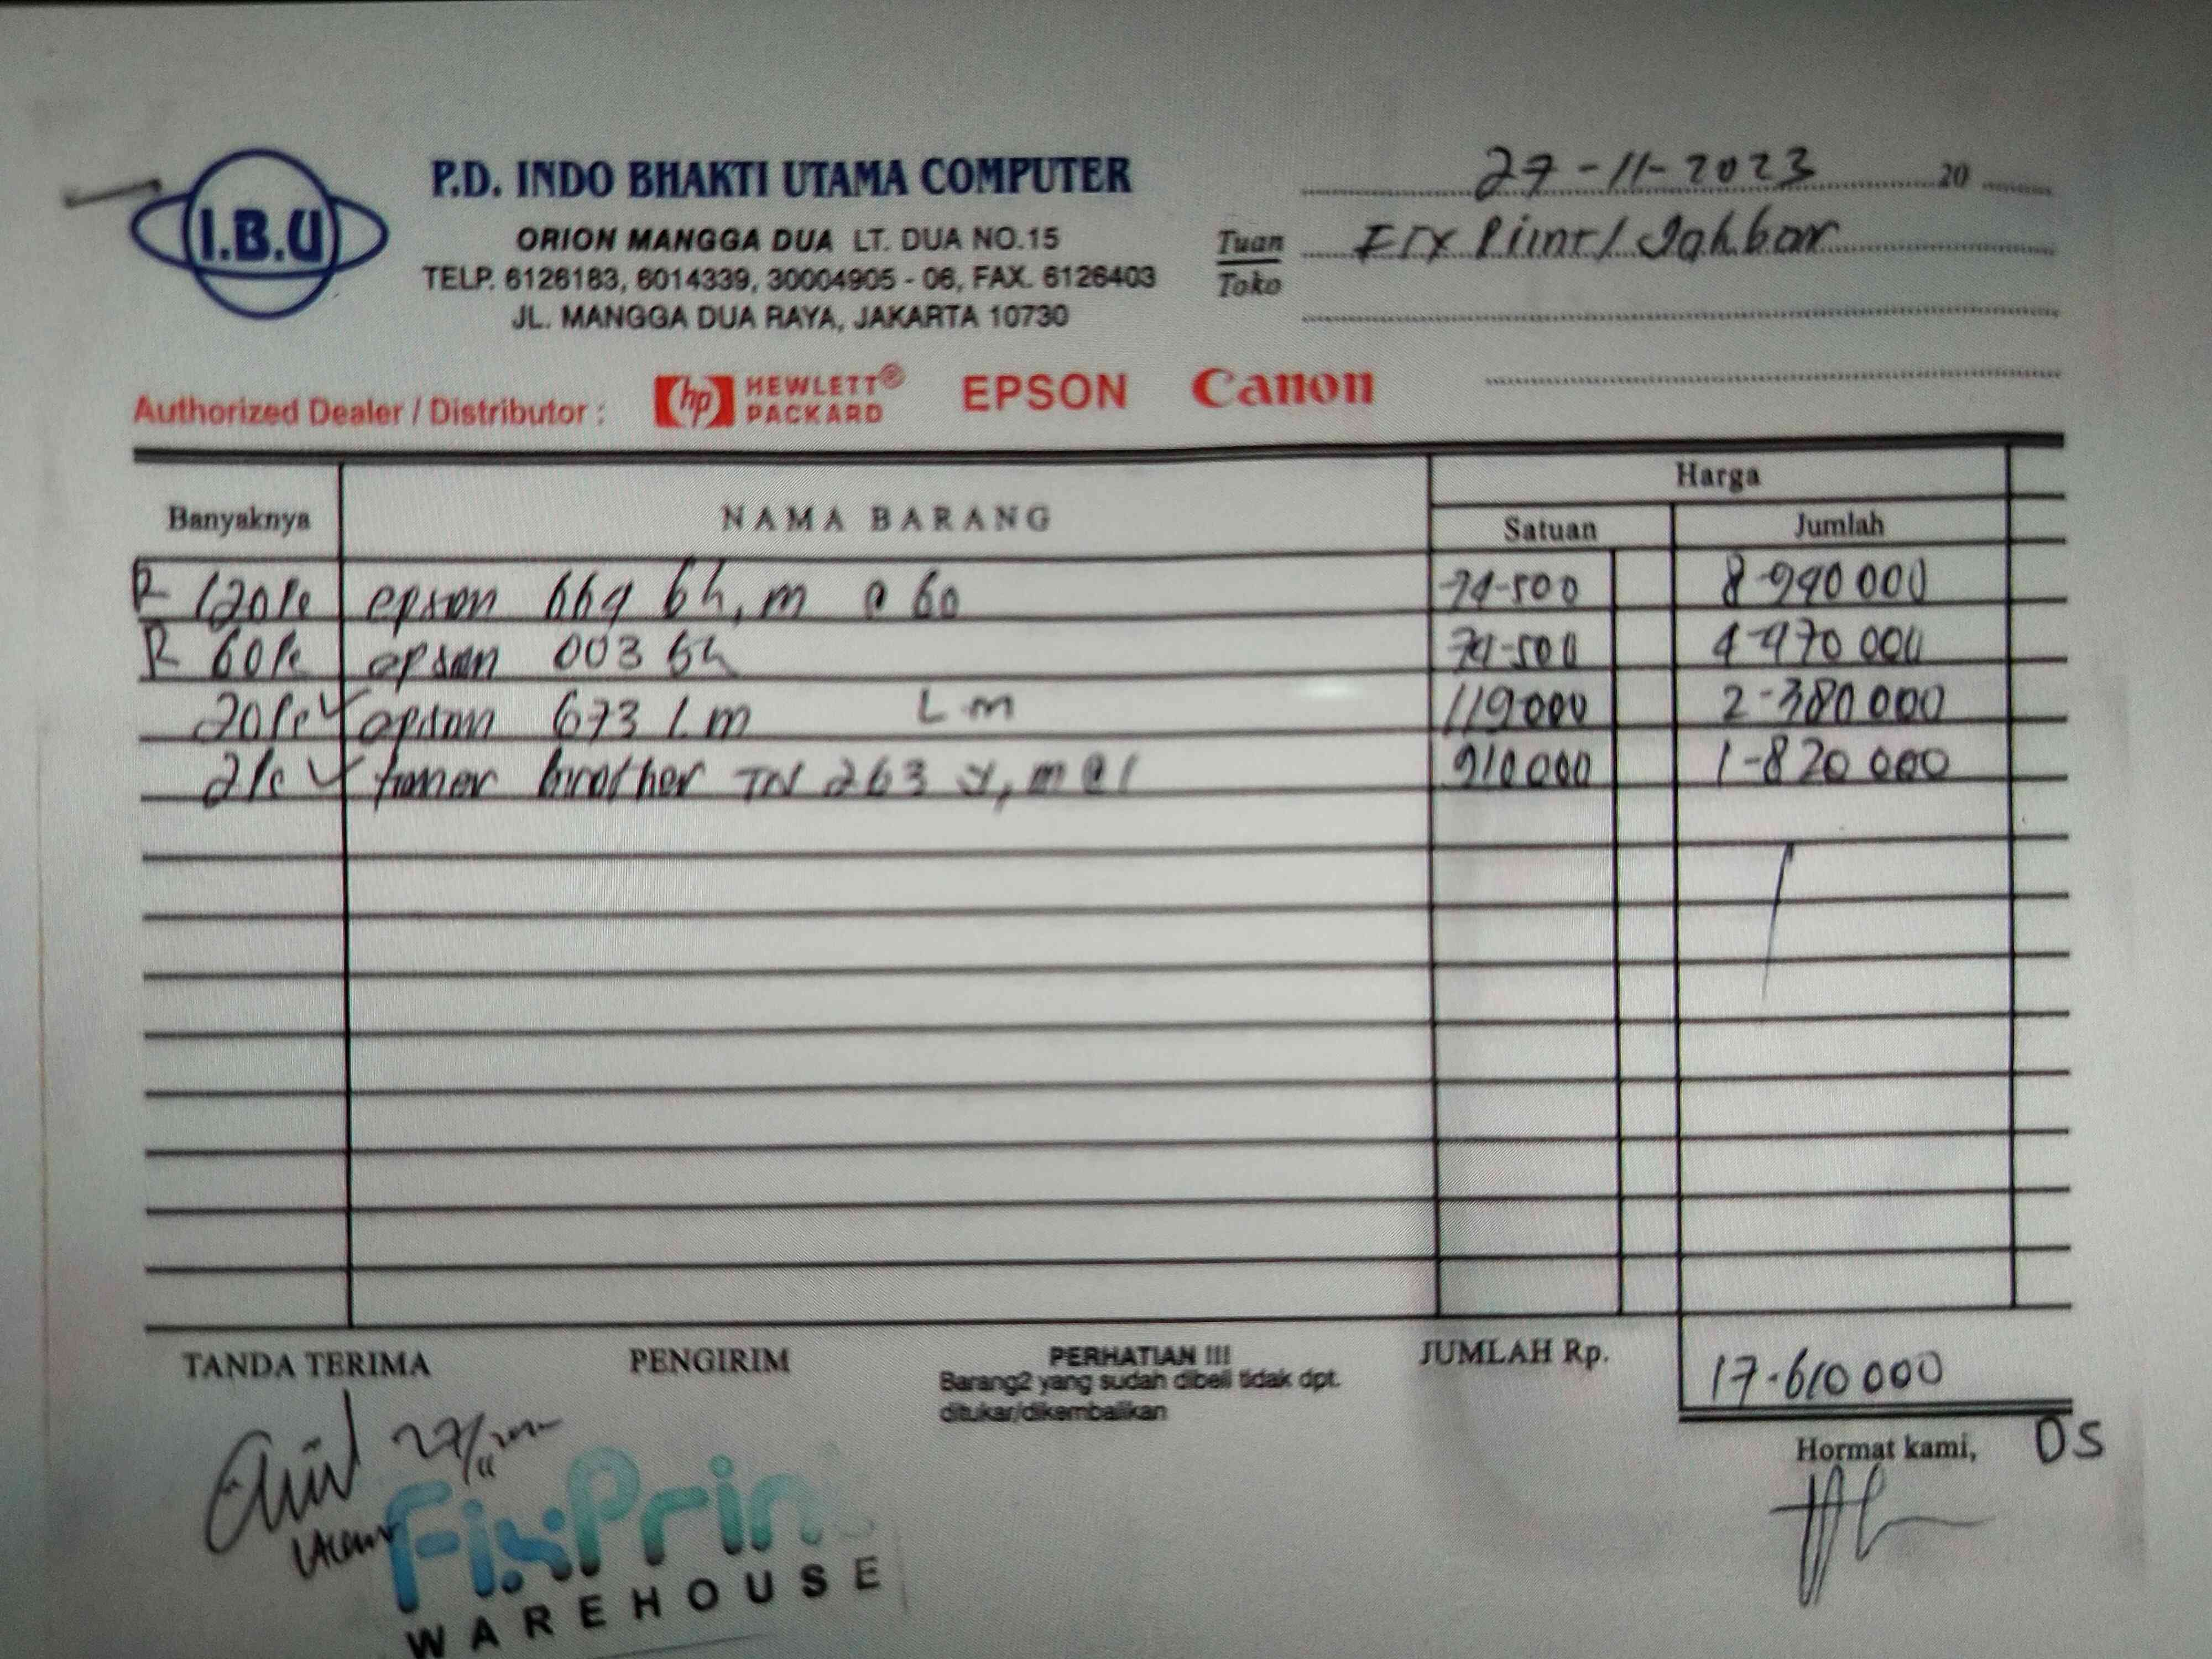 I.B.U
P.D. INDO BHAKTI UTAMA COMPUTER
ORION MANGGA DUA LT. DUA NO.15
TELP. 6126183, 6014339, 30004905 - 06, FAX. 6126403
JL. MANGGA DUA RAYA, JAKARTA 10730
27-11-2023 20
Tuan
Toko
Jakbar
Authorized Dealer / Distributor : hp HEWLETT® PACKARD EPSON Canon
Banyaknya NAMA BARANG Harga
Satuan Jumlah
R 120 epson 664 bk, m @ 60 74-500 8-940 000
R 60 epson 003 bk 74-500 4-470 000
20 epson 673 Lm Lm 119000 2-380 000
2 toner brother TN 263 y, m @1 910000 1-820 000
TANDA TERIMA PENGIRIM PERHATIAN !!! JUMLAH Rp. 17-610 000
Barang2 yang sudah dibeli tidak dpt.
ditukar/dikembalikan
Hormat kami, DS
27/11
FixPrin
WAREHOUSE